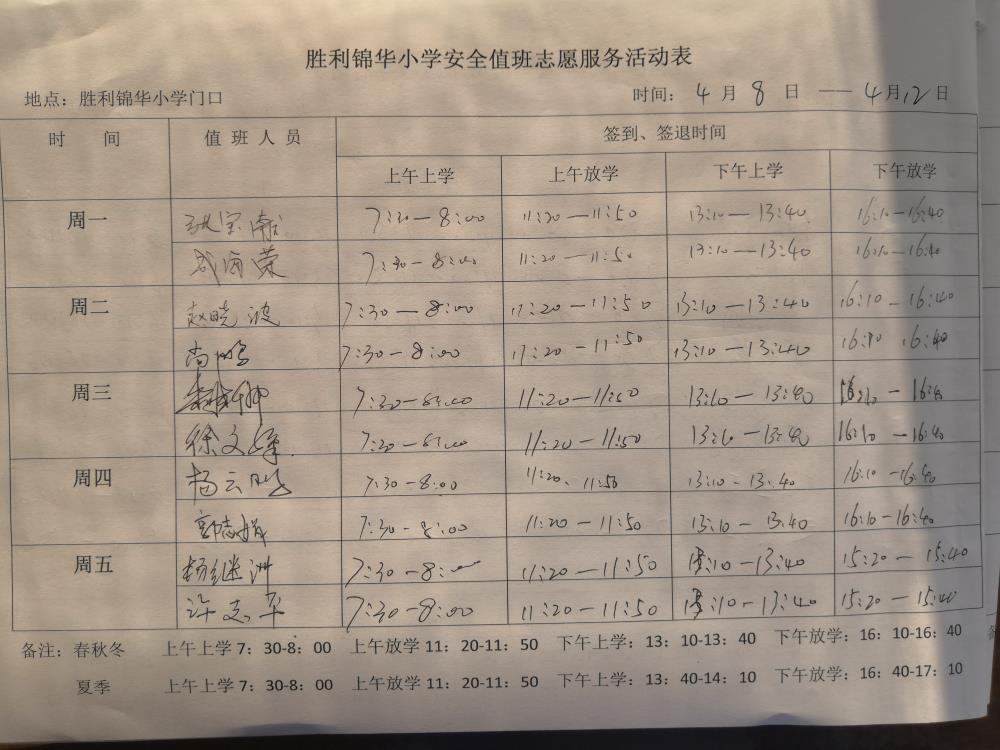 胜利锦华小学安全值班志愿服务活动表
地点：胜利锦华小学门口 时间：4月8日——4月12日
时 间 值班人员 签到、签退时间
上午上学 上午放学 下午上学 下午放学
周一 7:30—8:00 11:20—11:50 13:10—13:40 16:10—16:40
荣 7:30-8:00 11:20—11:50 13:10—13:40 16:10—16:40
周二 赵晓波 7:30—8:00 11:20—11:50 13:10—13:40 16:10—16:40
尚鹏 7:30-8:00 11:20-11:50 13:10—13:40 16:10 16:40
周三 7:30-8:00 11:20—11:50 13:10—13:40 16:10—16:40
徐文 7:30-8:00 11:20—11:50 13:10—13:40 16:10—16:40
周四 杨云 7:30-8:00 11:20、11:50 13:10-13:40 16:10-16:40
郭志娟 7:30-8:00 11:20—11:50 13:10—13:40 16:10-16:40
周五 杨继洲 7:30-8: 11:20—11:50 13:10-13:40 15:20—15:40
许志平 7:30-8:00 11:20—11:50 13:10-13:40 15:20—15:40
备注：春秋冬 上午上学 7：30-8：00 上午放学 11：20-11：50 下午上学：13：10-13：40 下午放学：16：10-16：40
夏季 上午上学 7：30-8：00 上午放学 11：20-11：50 下午上学：13：40-14：10 下午放学：16：40-17：10